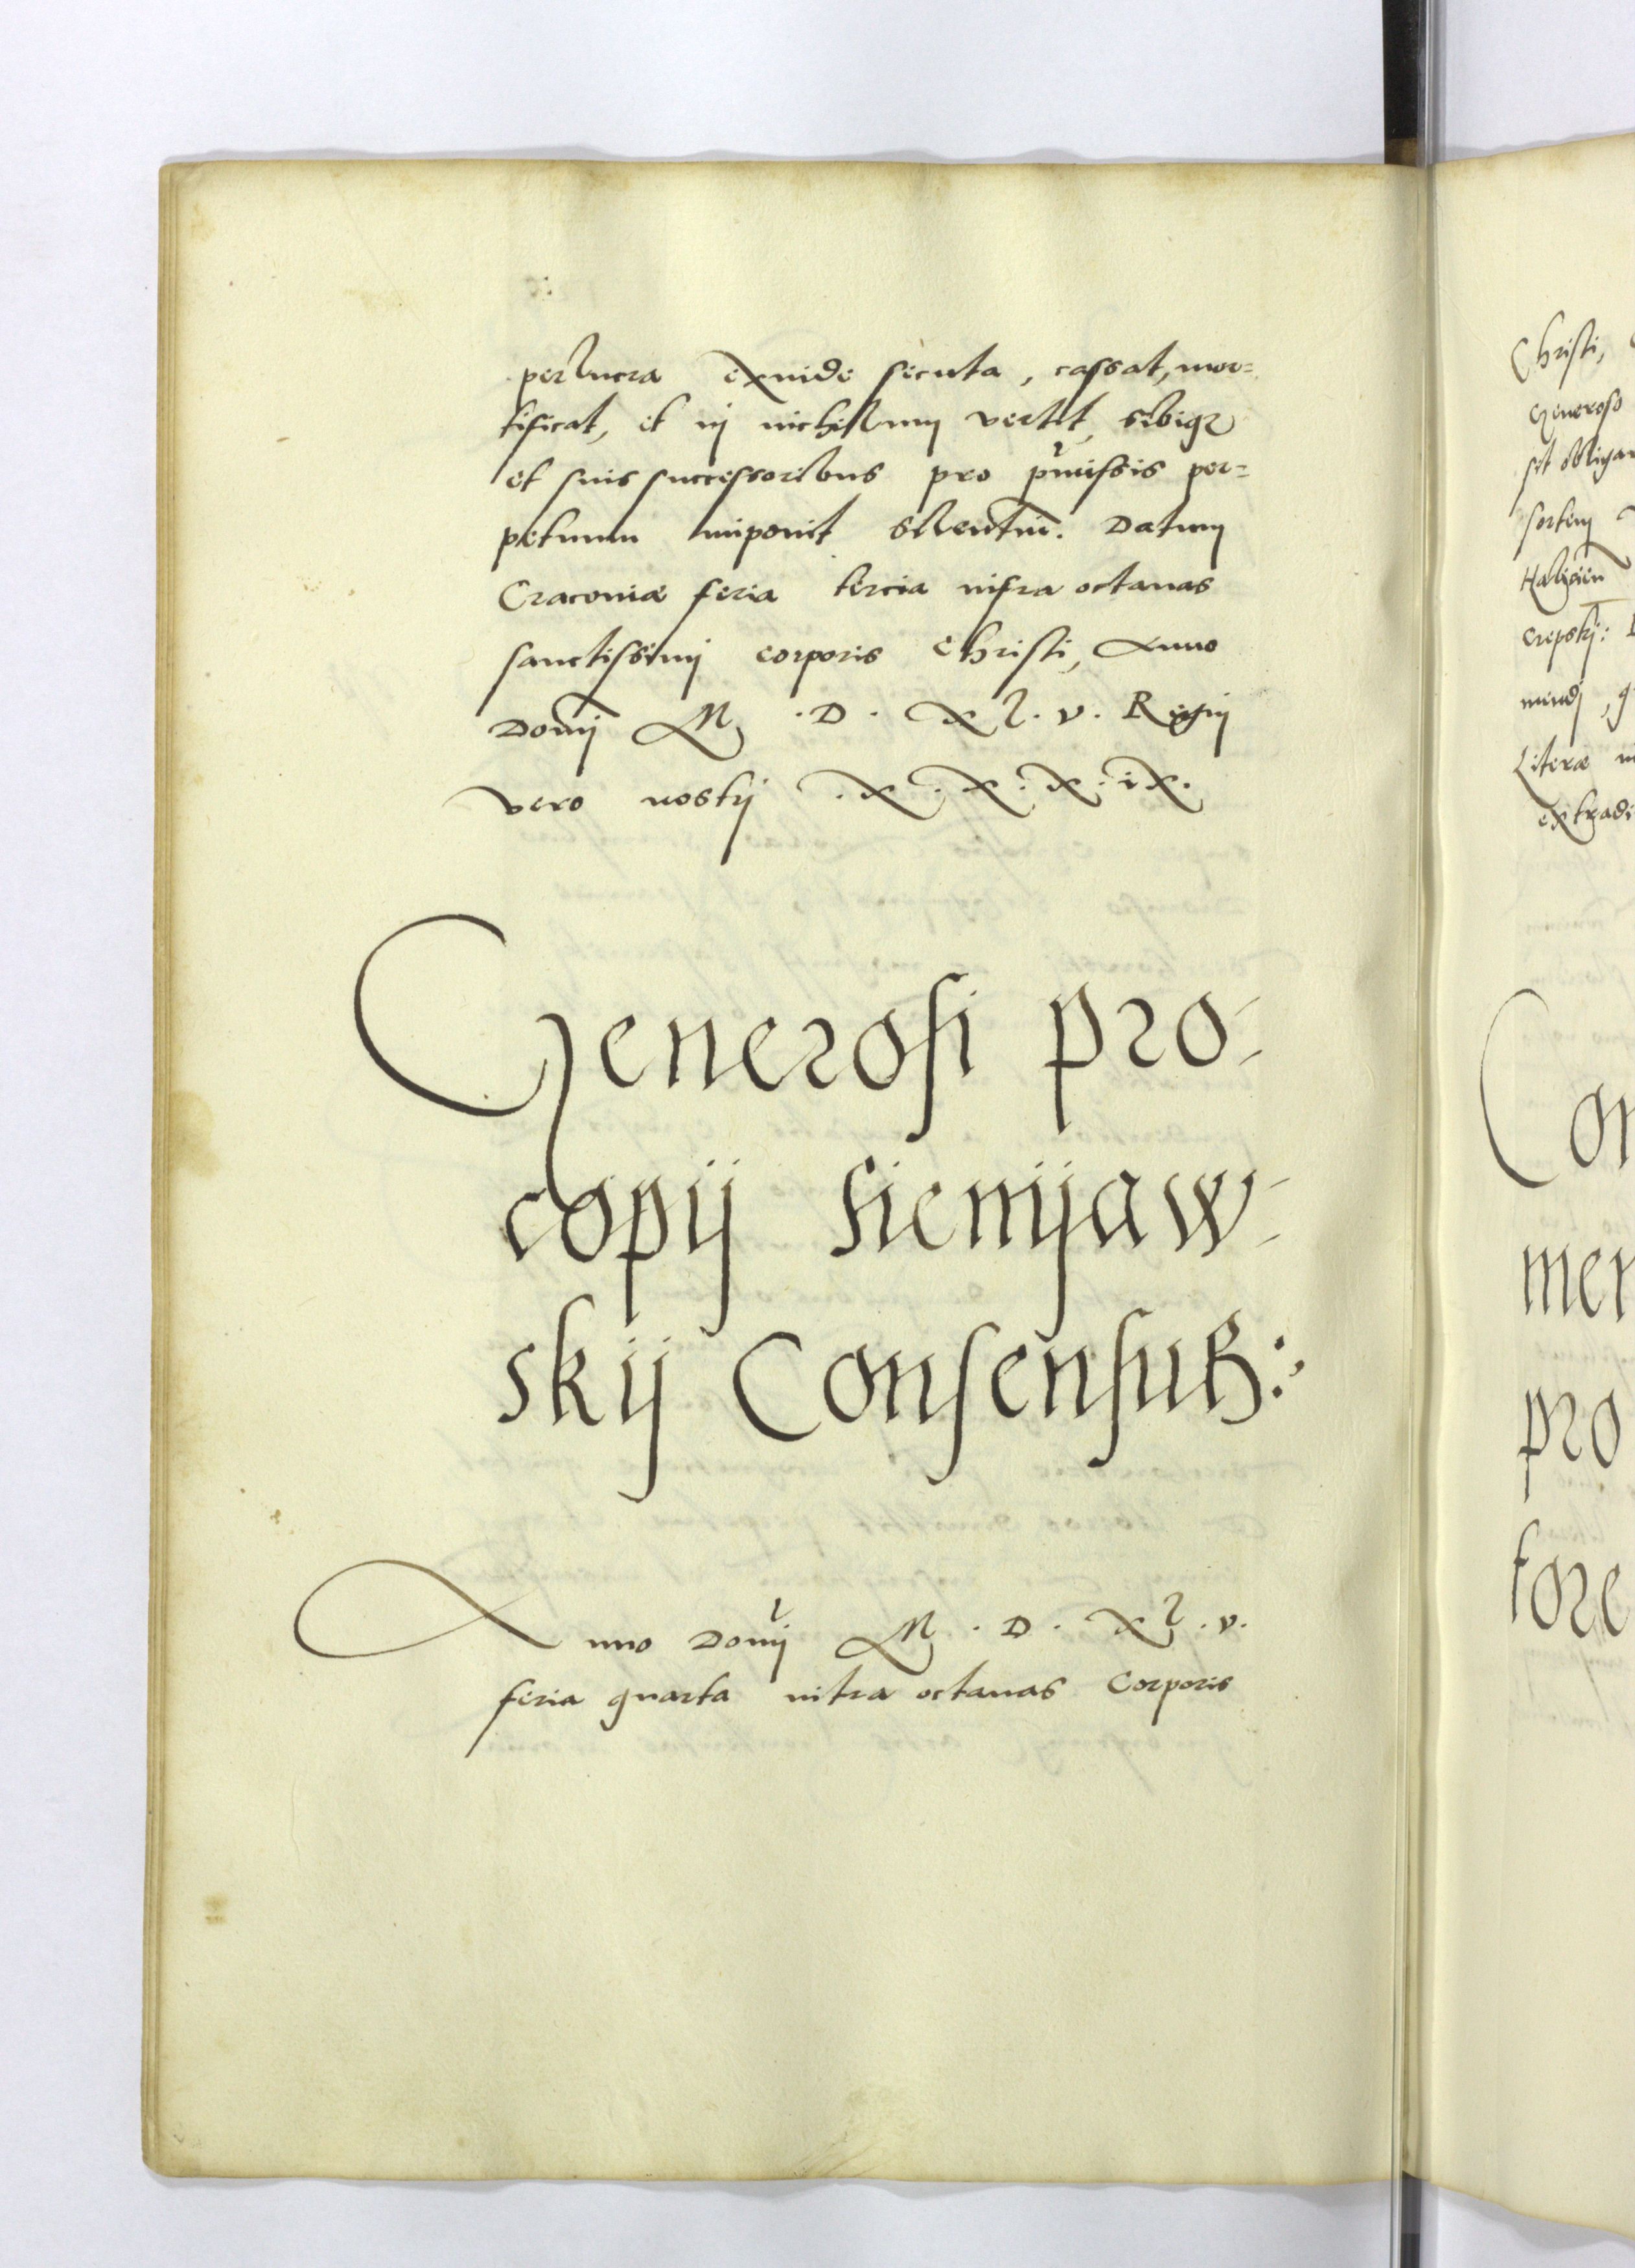 perlucra exinde secuta, cassat, mor=
tificat, et in nichilum vertit, sibiq3
et suis successoribus pro pmissis per=
petuum imponit silentiu. Datum
Cracoviæ feria tercia infra octavas
sanctissimi corporis Christi, Anno
Domi M . D . Xl . v . Regni
vero nostri . X . X . X . iX .
Generosi pro-
copij Siemijaw-
skij Consensus:
Anno Domi M . D . Xl . v .
feria quarta intra octavas Corporis
Christi,
Generoso
sit obliga
sortem
Halicien
Literæ
extradi
Con
men
pro